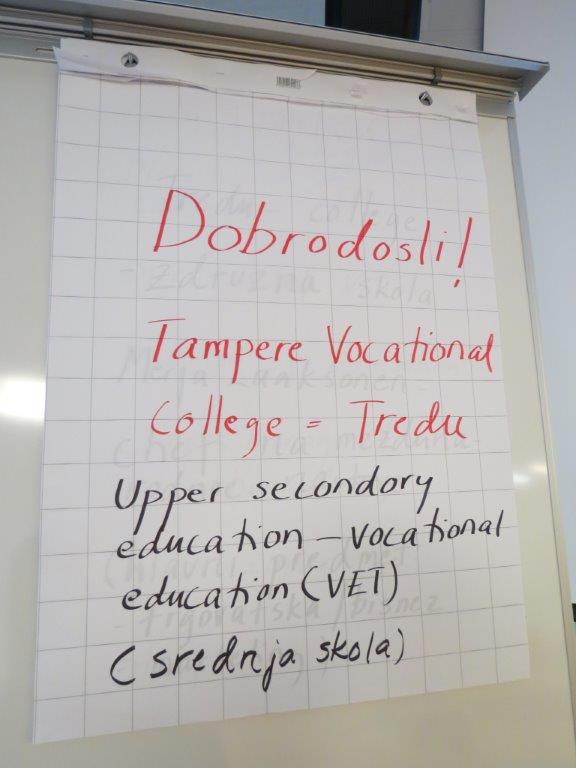 Dobrodosli!
Tampere Vocational
College = Tredu
Upper secondory
education - vocational
education (VET)
(srednja skola)